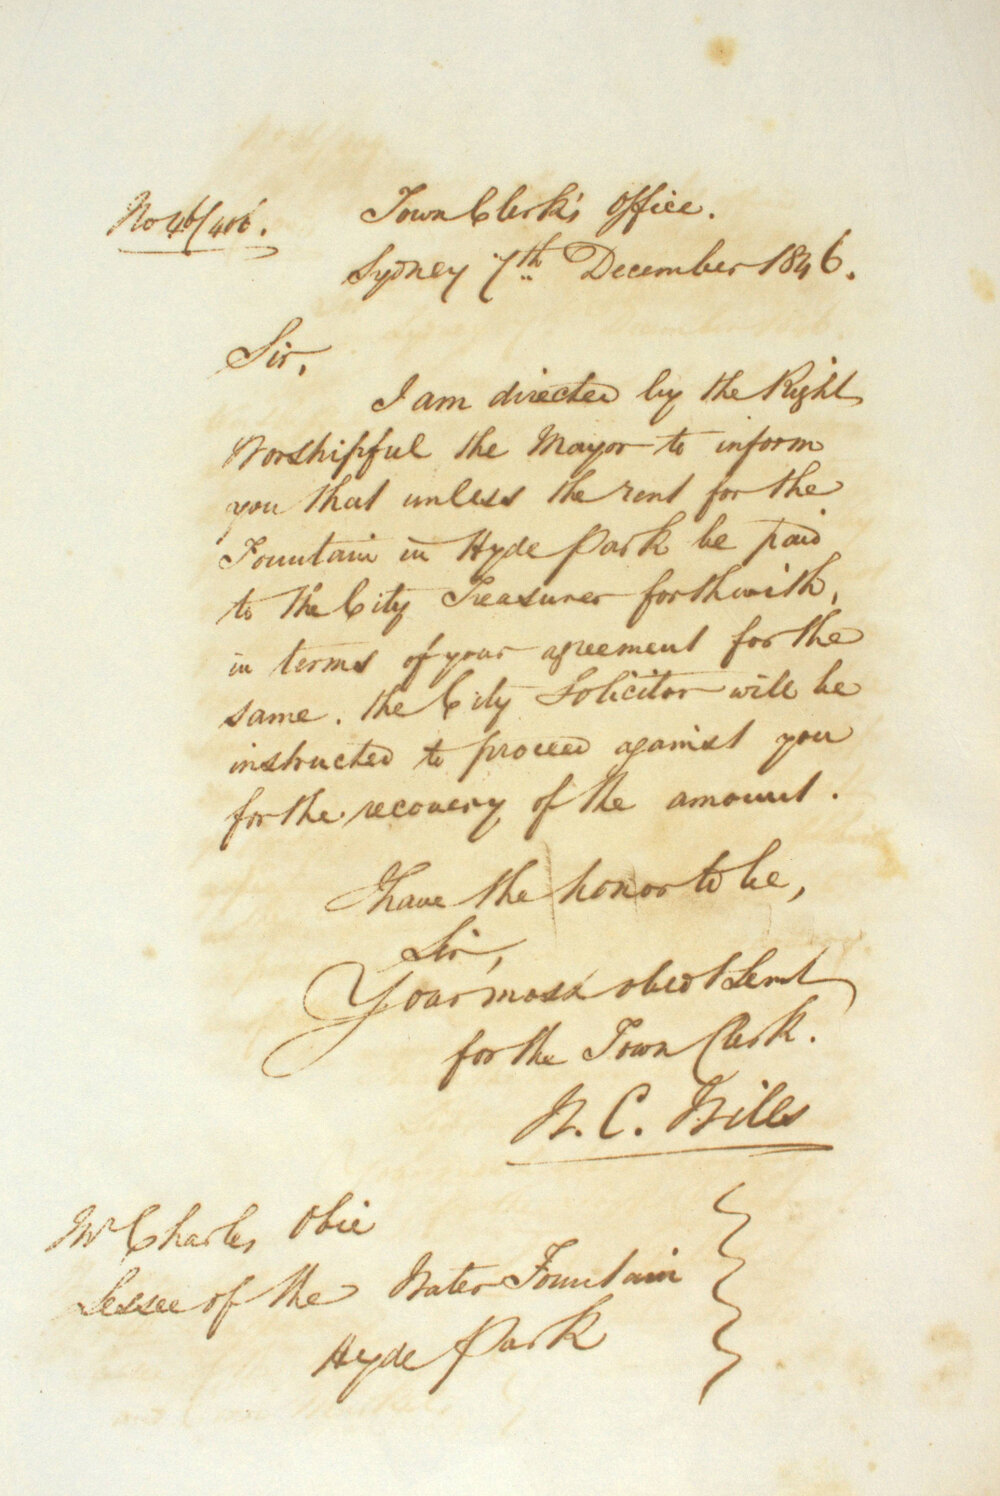 No 46/406.
Town Clerk's Office.
Sydney 7th December 1846.
Sir,
I am directed by the Right
Worshipful the Mayor to inform
you that unless the rent for the
Fountain in Hyde Park be paid
to the City Treasurer forthwith,
in terms of your agreement for the
same. the City Solicitor will be
instructed to proceed against you
for the recovery of the amount.
I have the honor to be,
Sir,
Your most obedt Servt
for the Town Clerk.
W. C. Wills
Mr Charles Obie
Lessee of the Water Fountain
Hyde Park